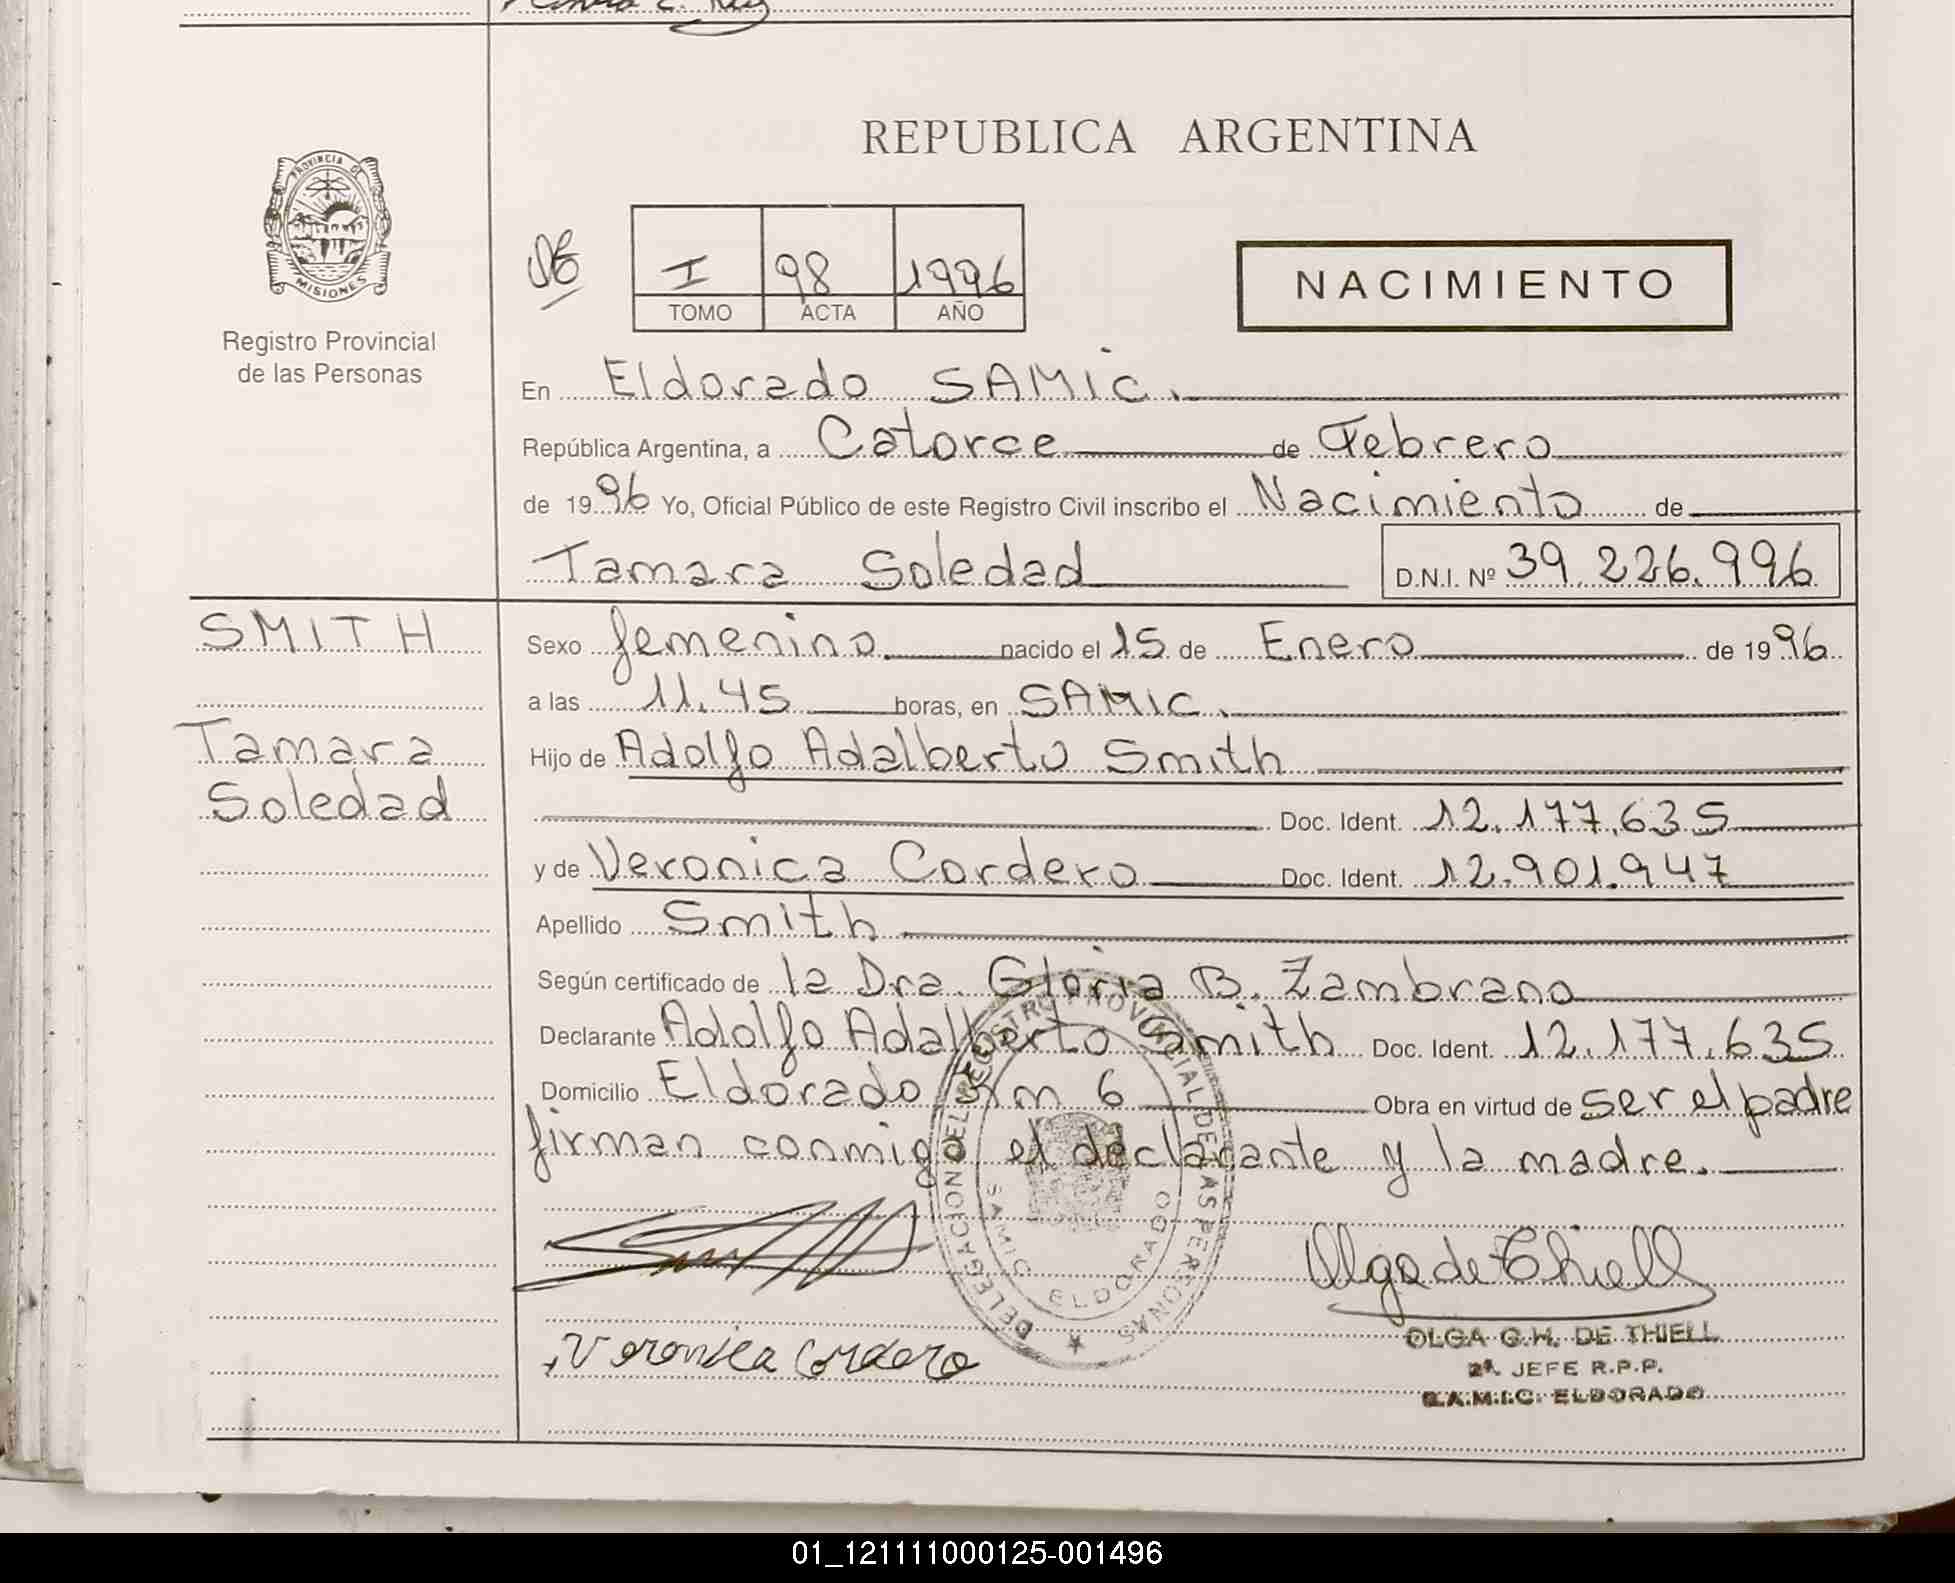 REPUBLICA ARGENTINA
PROVINCIA DE
MISIONES
Registro Provincial
de las Personas
I 98 1996
TOMO ACTA AÑO
NACIMIENTO
En Eldorado SAMIC.
República Argentina, a Catorce de Febrero
de 1996 Yo, Oficial Público de este Registro Civil inscribo el Nacimiento de
Tamara Soledad D.N.I. Nº 39.226.996
SMITH
Tamara
Soledad
Sexo femenino. nacido el 15 de Enero de 1996
a las 11.45 horas, en SAMIC.
Hijo de Adolfo Adalberto Smith
Doc. Ident. 12.177.635
y de Veronica Cordero Doc. Ident. 12.901.947
Apellido Smith
Según certificado de la Dra. Gloria B. Zambrano
Declarante Adolfo Adalberto Smith Doc. Ident. 12.177.635
Domicilio Eldorado Km 6 Obra en virtud de ser el padre
firman conmigo el declarante y la madre.
DELEGACION DEL REGISTRO PROVINCIAL DE LAS PERSONAS
SAMIC ELDORADO
Olga de Thiell
Veronica Cordero
OLGA G.H. DE THIELL
2ª. JEFE R.P.P.
S.A.M.I.C. ELDORADO
01_121111000125-001496